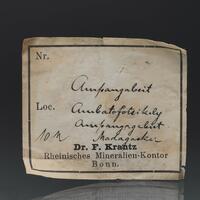 Nr.
Ampangabeit
Loc. Ambatofotsikely
Ampangabeit
Madagaskar
Dr. F. Krantz
Rheinisches Mineralien-Kontor
Bonn.